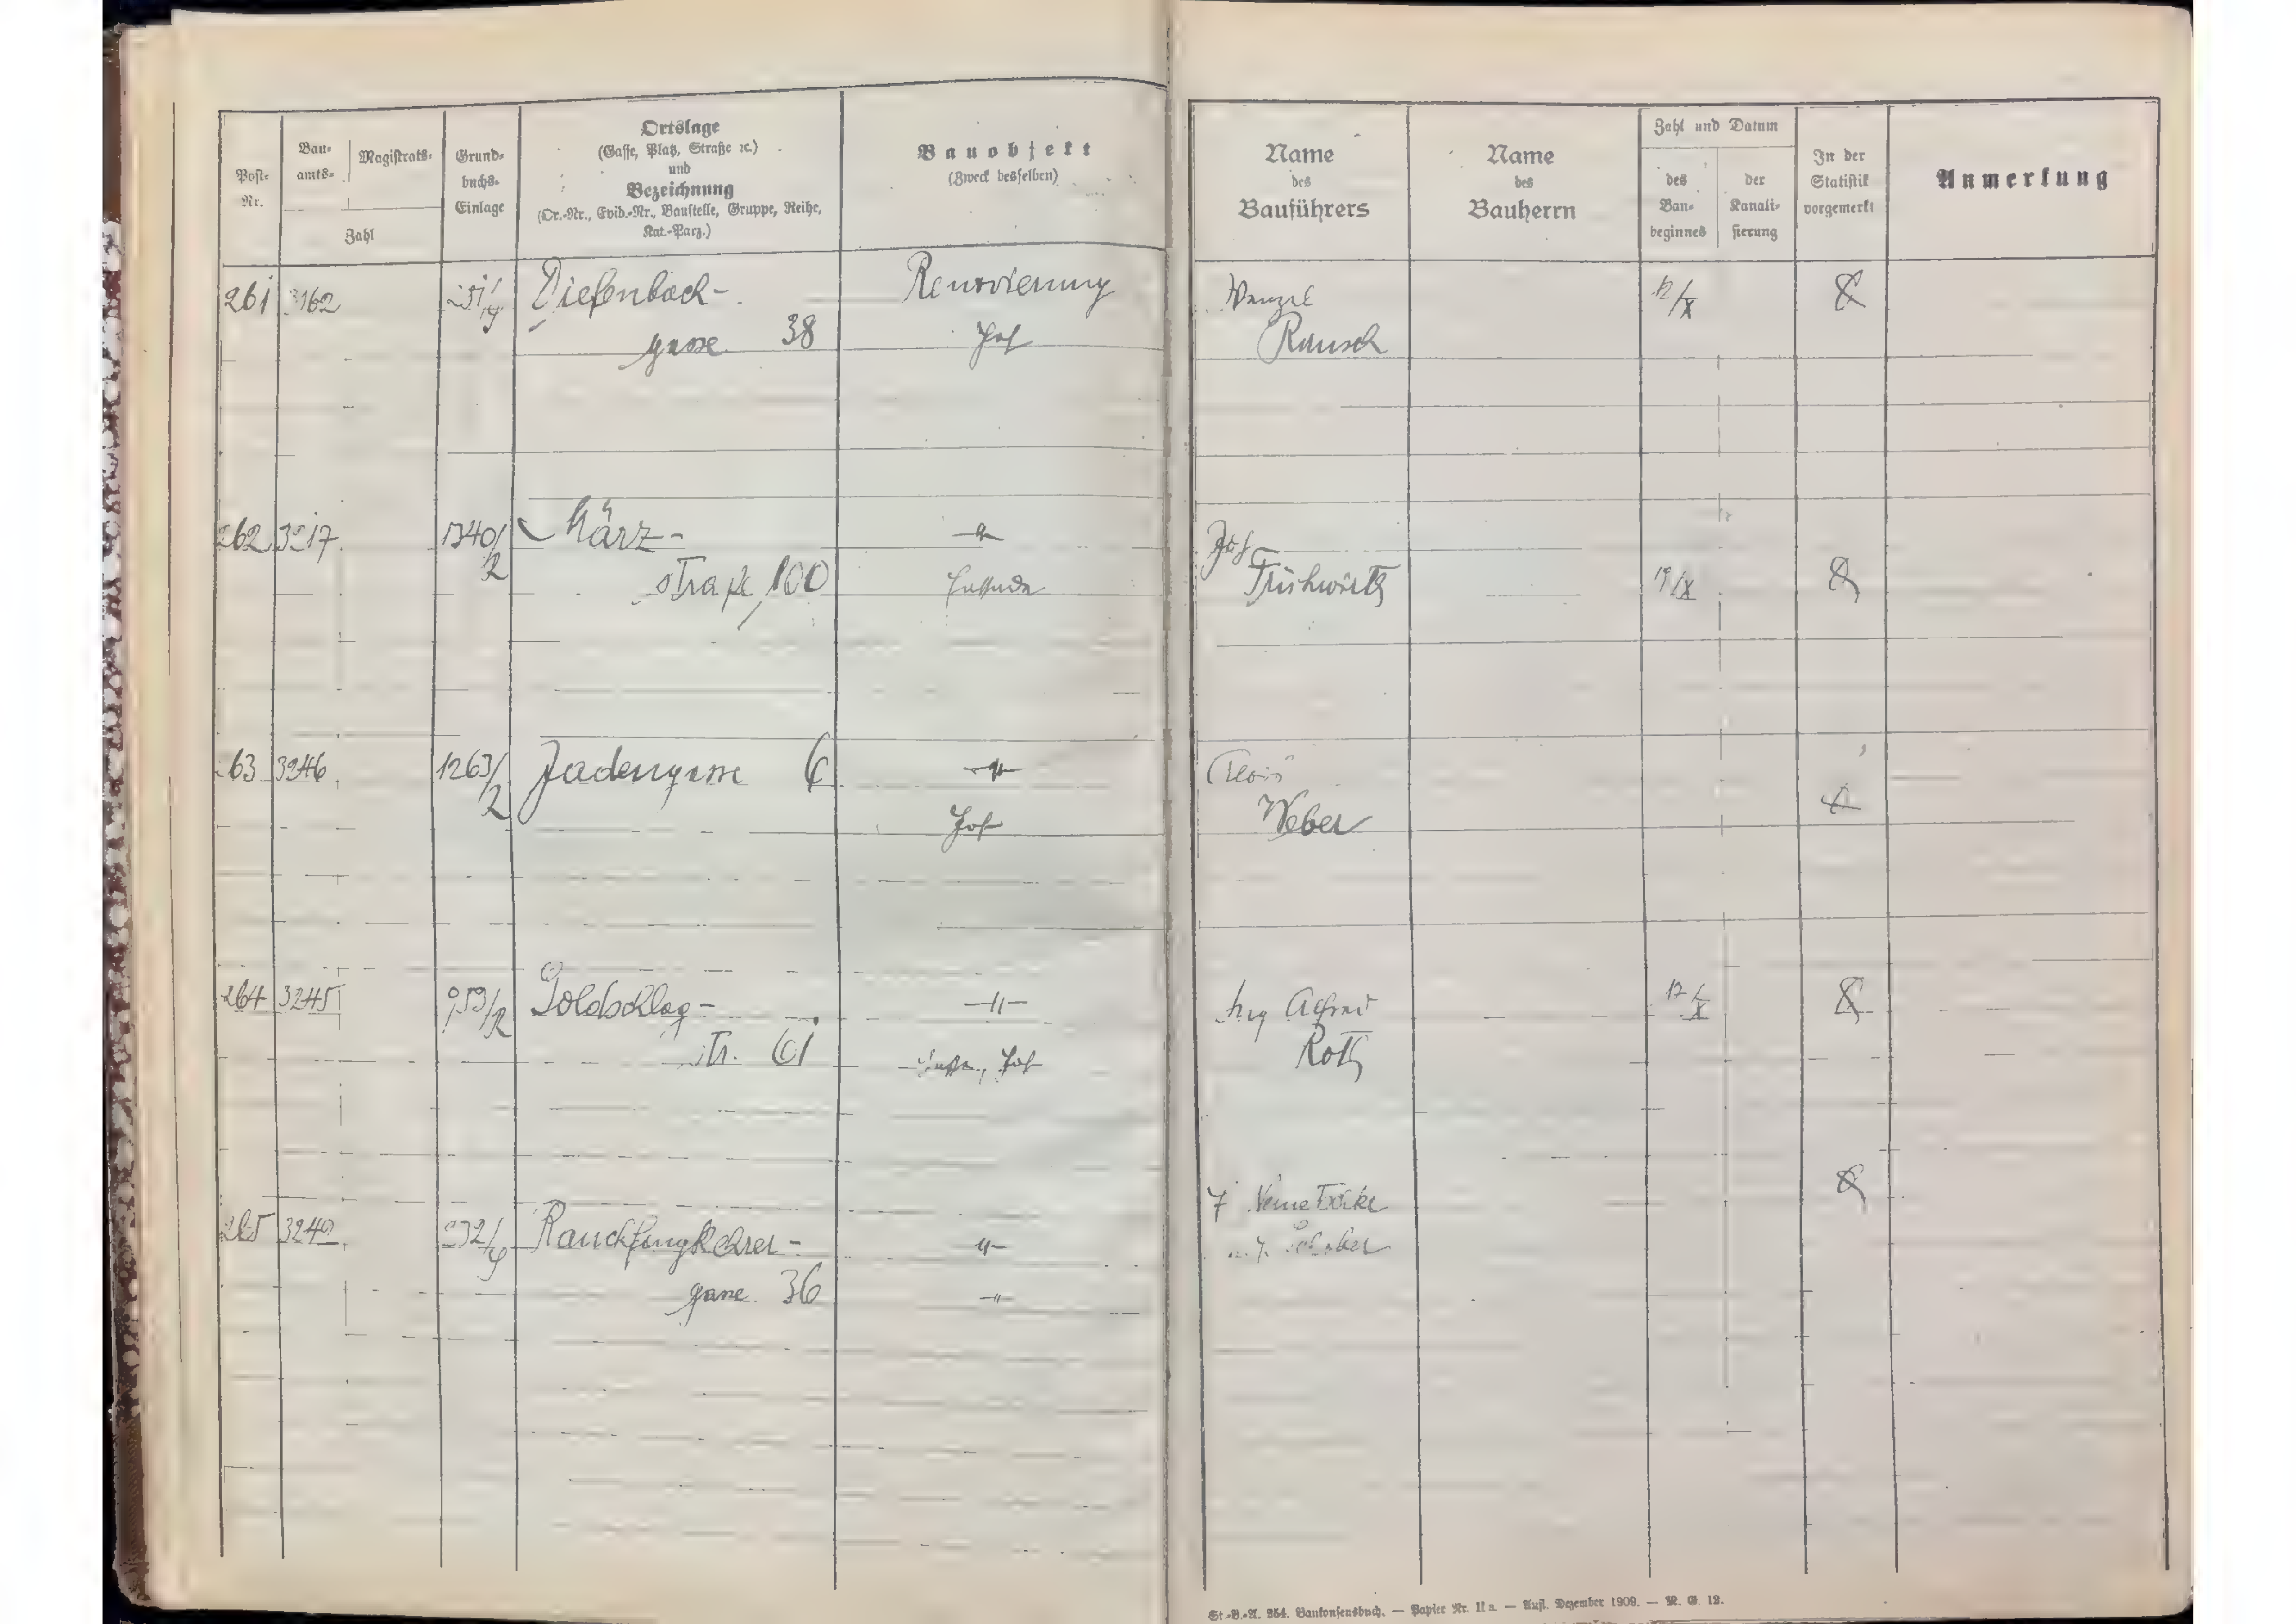 Post-Nr.
Bauamts-
Magistrats-
Zahl
Grundbuchs-Einlage
Ortslage
(Gasse, Platz, Straße ꝛc.)
und
Bezeichnung
(Or.-Nr., Evid.-Nr., Baustelle, Gruppe, Reihe,
Kat.-Parz.)
Bauobjekt
(Zweck desselben)
Name
des
Bauführers
Name
des
Bauherrn
Zahl und Datum
des
Baubeginnes
der
Kanalisierung
In der
Statistik
vorgemerkt
Anmerkung
261 3162 Diefenbach- Renovierung 12/X
gasse 38 Hof Rausch
262 3217 1340/2 März- -"- Jos.
straße 100 Fassade Frühwirth 19/X
63 3246 1263/2 Jadengasse 6 -"- Alois
Hof Weber
264 3245 959/2 Goldschlag- -"- Ing Alfred 17/X
str. 61 Hof Roth
265 3240 Rauchfangkehrer- -"-
gasse 36 -"-
St.-B.-A. 254. Baukonsensbuch. — Papier Nr. 11 a. — Aufl. Dezember 1909. — M. G. 12.